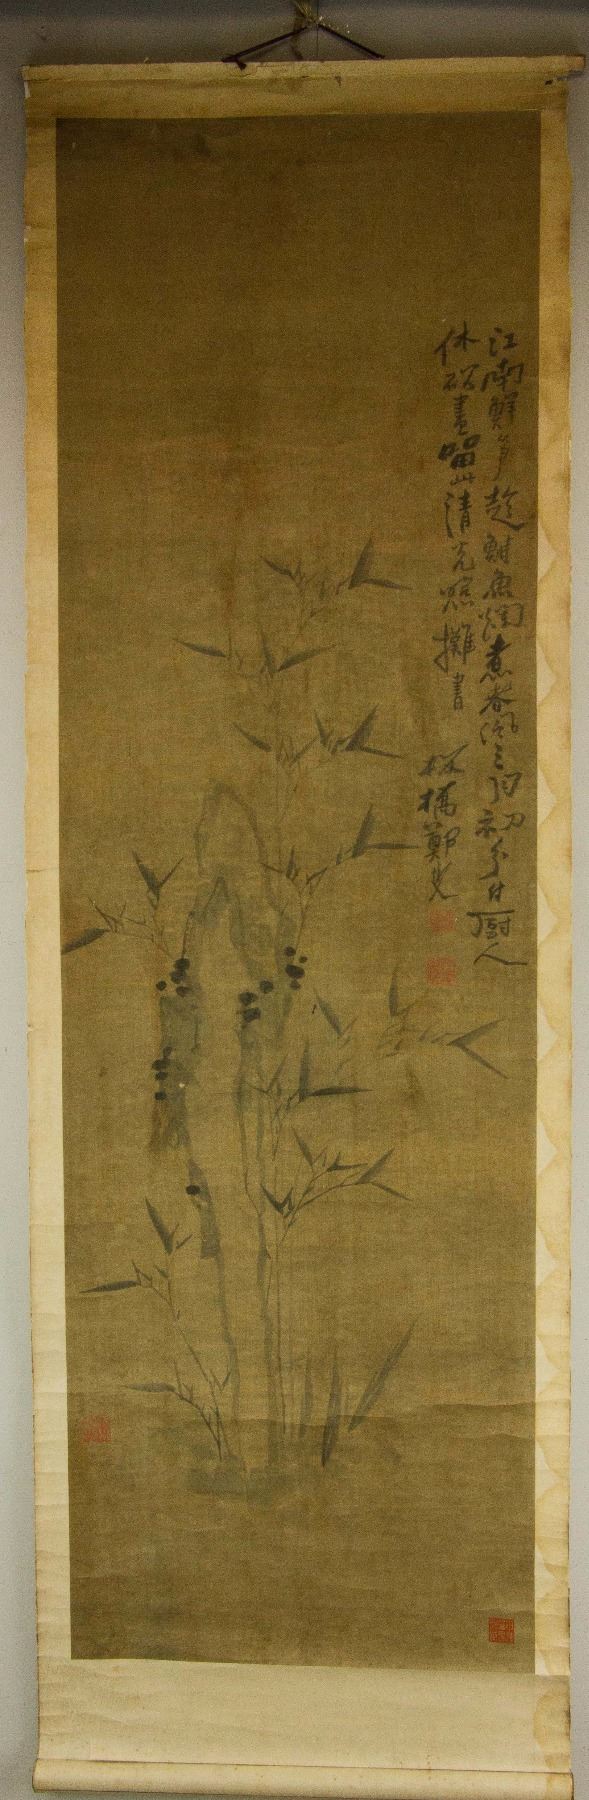 江南鮮笋趁鰣魚爛煮春風三月初分付厨人
休斫盡留此清光照攤書
板橋鄭燮